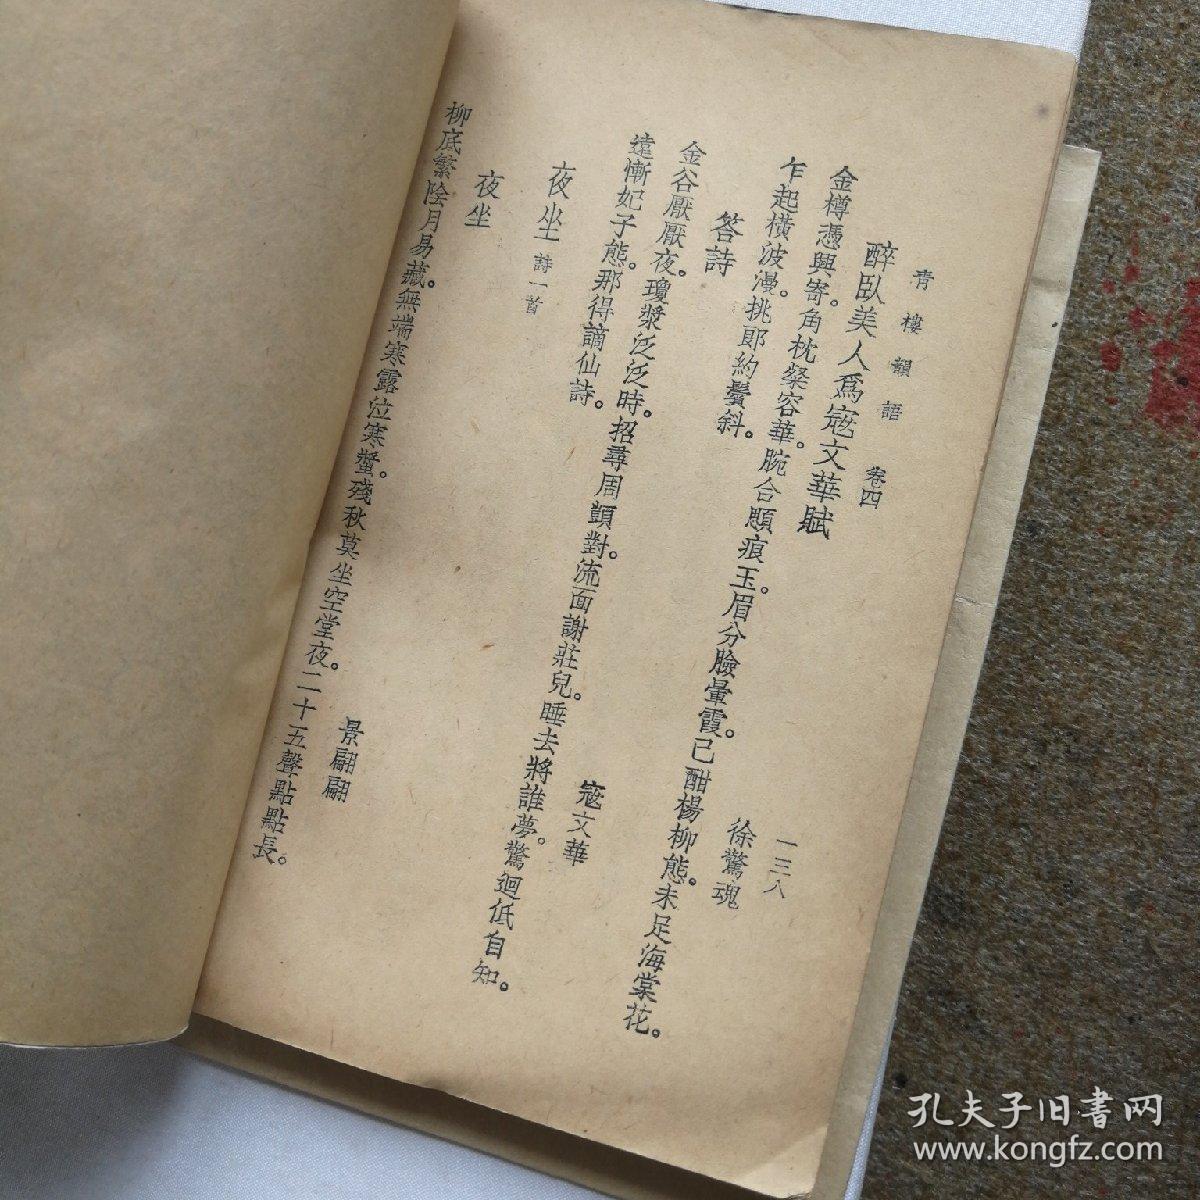 青樓韻語　卷四　一三八
醉臥美人爲寇文華賦　徐驚魂
金樽憑興寄。角枕粲容華。腕合頤痕玉。眉分臉暈霞。已酣楊柳態。未足海棠花。
乍起橫波漫。挑郎約鬢斜。
答詩　寇文華
金谷厭厭夜。瓊漿泛泛時。招尋周顗對。流面謝莊兒。睡去將誰夢。驚迴低自知。
遠慚妃子態。那得謫仙詩。
夜坐 詩一首
夜坐　景翩翩
柳底繁陰月易藏。無端寒露泣寒螿。殘秋莫坐空堂夜。二十五聲點點長。
孔夫子旧书网
www.kongfz.com